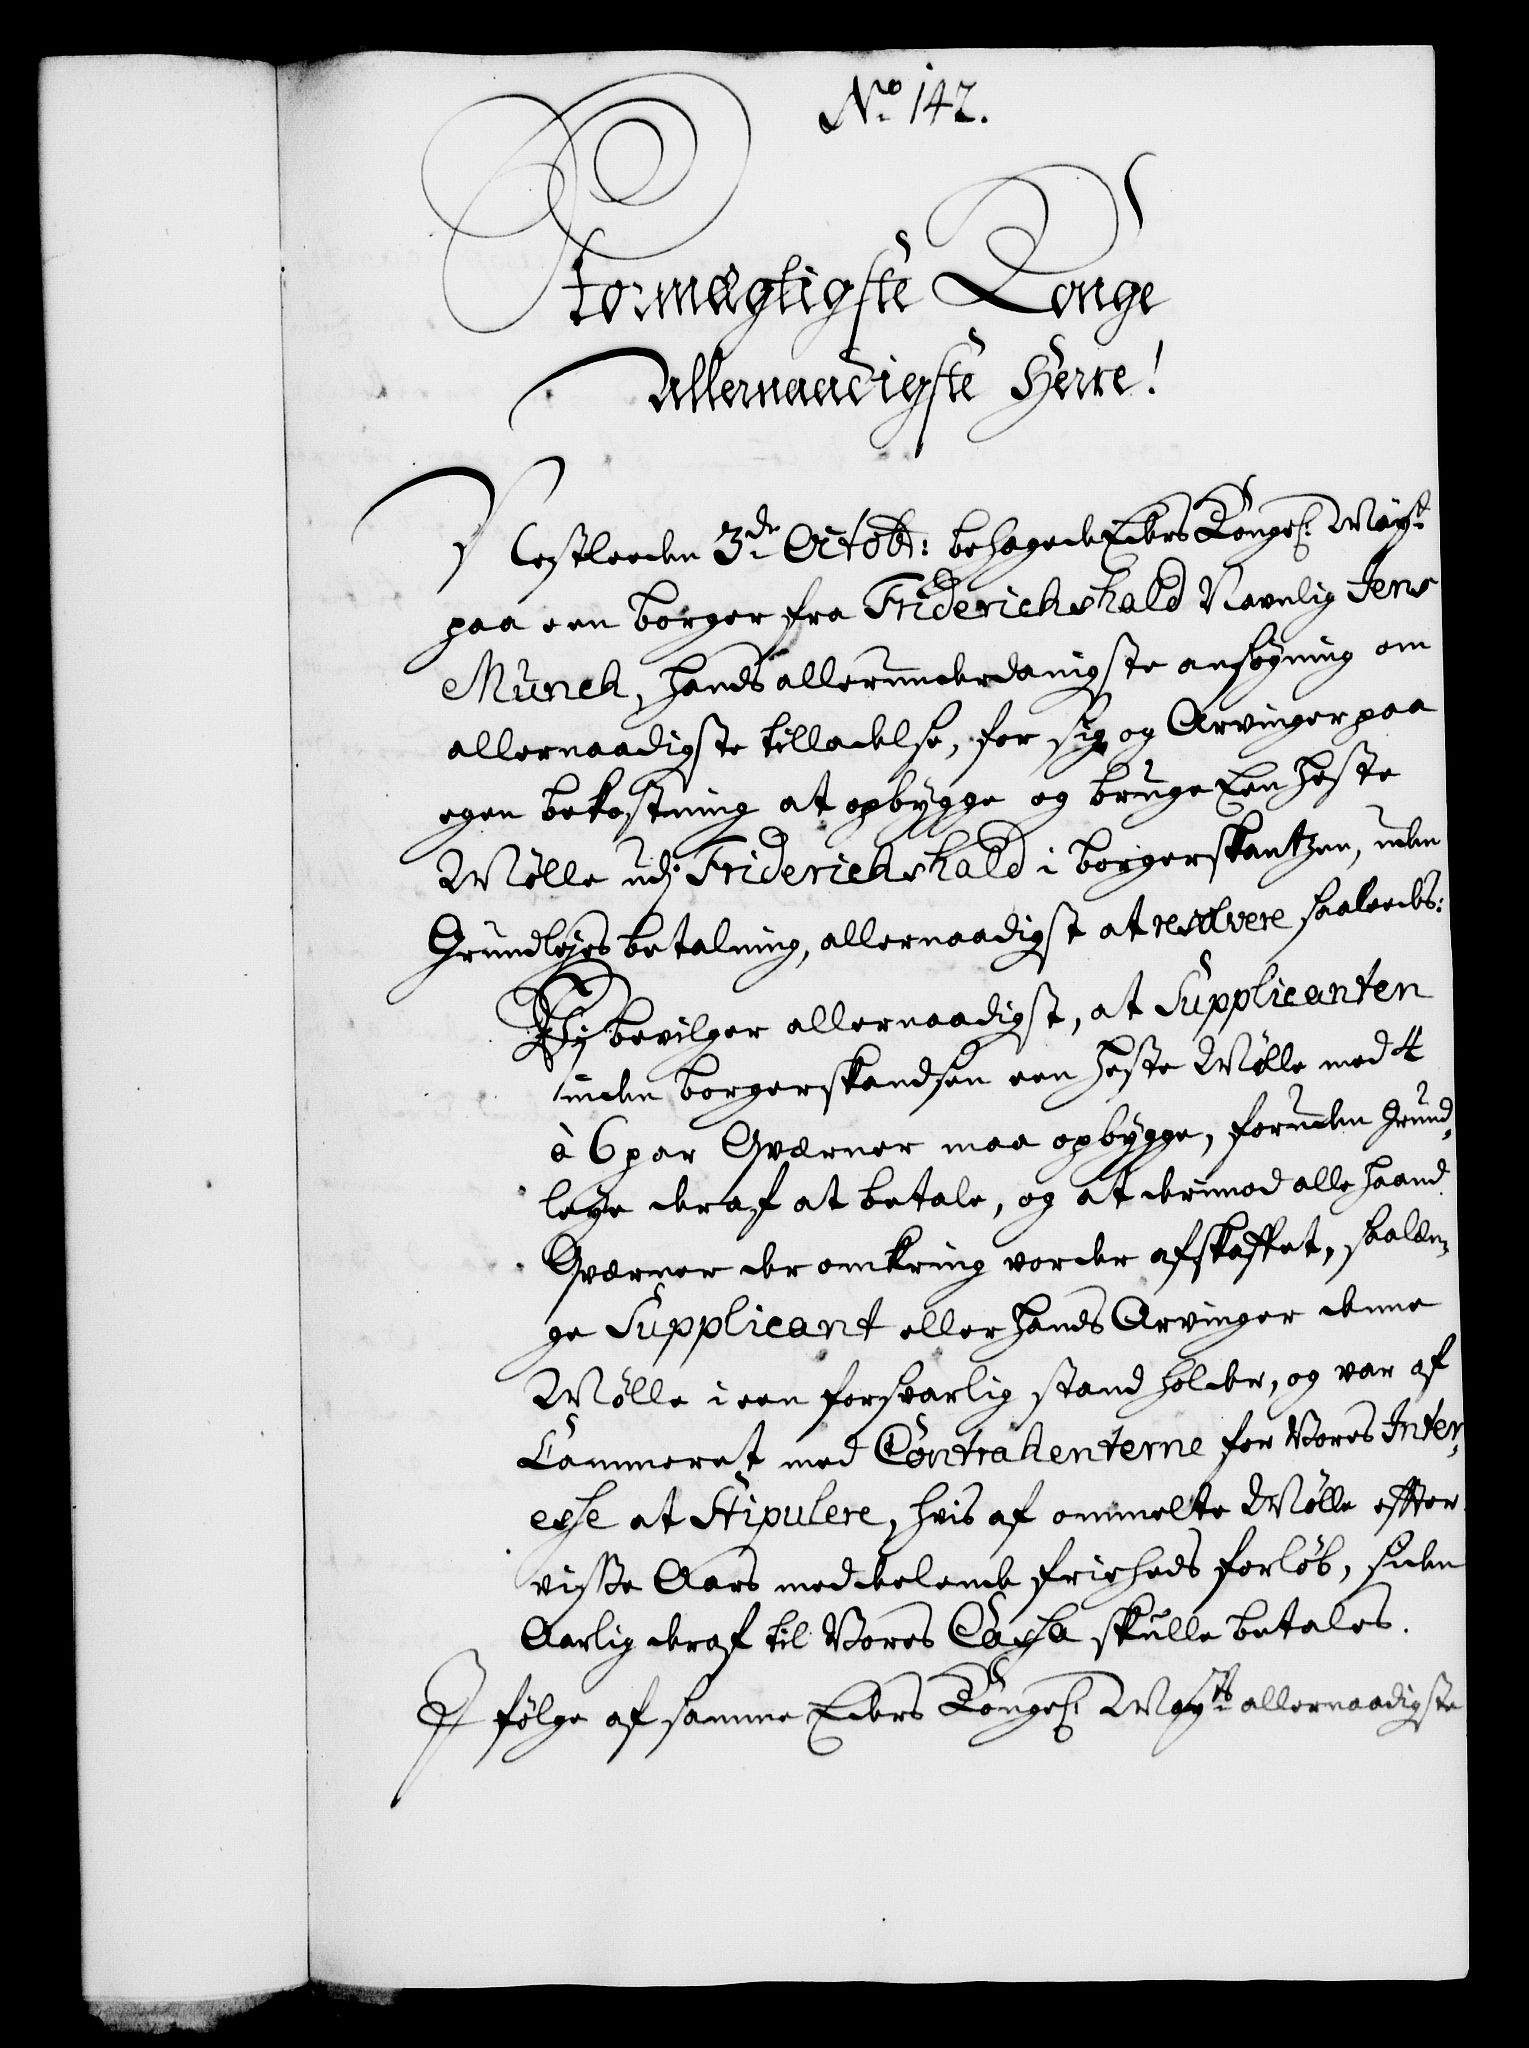 No. 142.
Stormægtigste Konge
Allernaadigste Herre!
Nestleeden 3de Octob: behagede Eders Kongel: Mayt
paa een borger fra Friderichshald Navnlig Jens
Munch, hands allerunderdanigste ansøgning om
allernaadigste tilladelse, for sig og Arvinger paa
egen bekostning at opbygge og bruge Een heste
Mølle udj Friderichshald i borgerskantzen, uden
Grundlejes betalning, allernaadigst at resolvere saaleedes:
Vj bevilger allernaadigst, at Supplicanten
inden borgerskandsen een heste Mølle med 4
à 6 par Qværner maa opbygge, foruden Grund-
leye deraf at betale, og at derimod alle haand
Qværner der omkring vorder afskaffet, saalæn-
ge Supplicant eller hands Arvinger denne
Mølle i een forsvarlig stand holder, og var af
Cammeret med Contrahenterne for Vores Inter-
esse at Stipulere, hvis af ommelte Mølle effter
visse Aars meddelende friheds forløb, siden
Aarlig deraf til Vores Cassa skulle betales.
I følge af samme Eders Kongel: Mayts allernaadigste